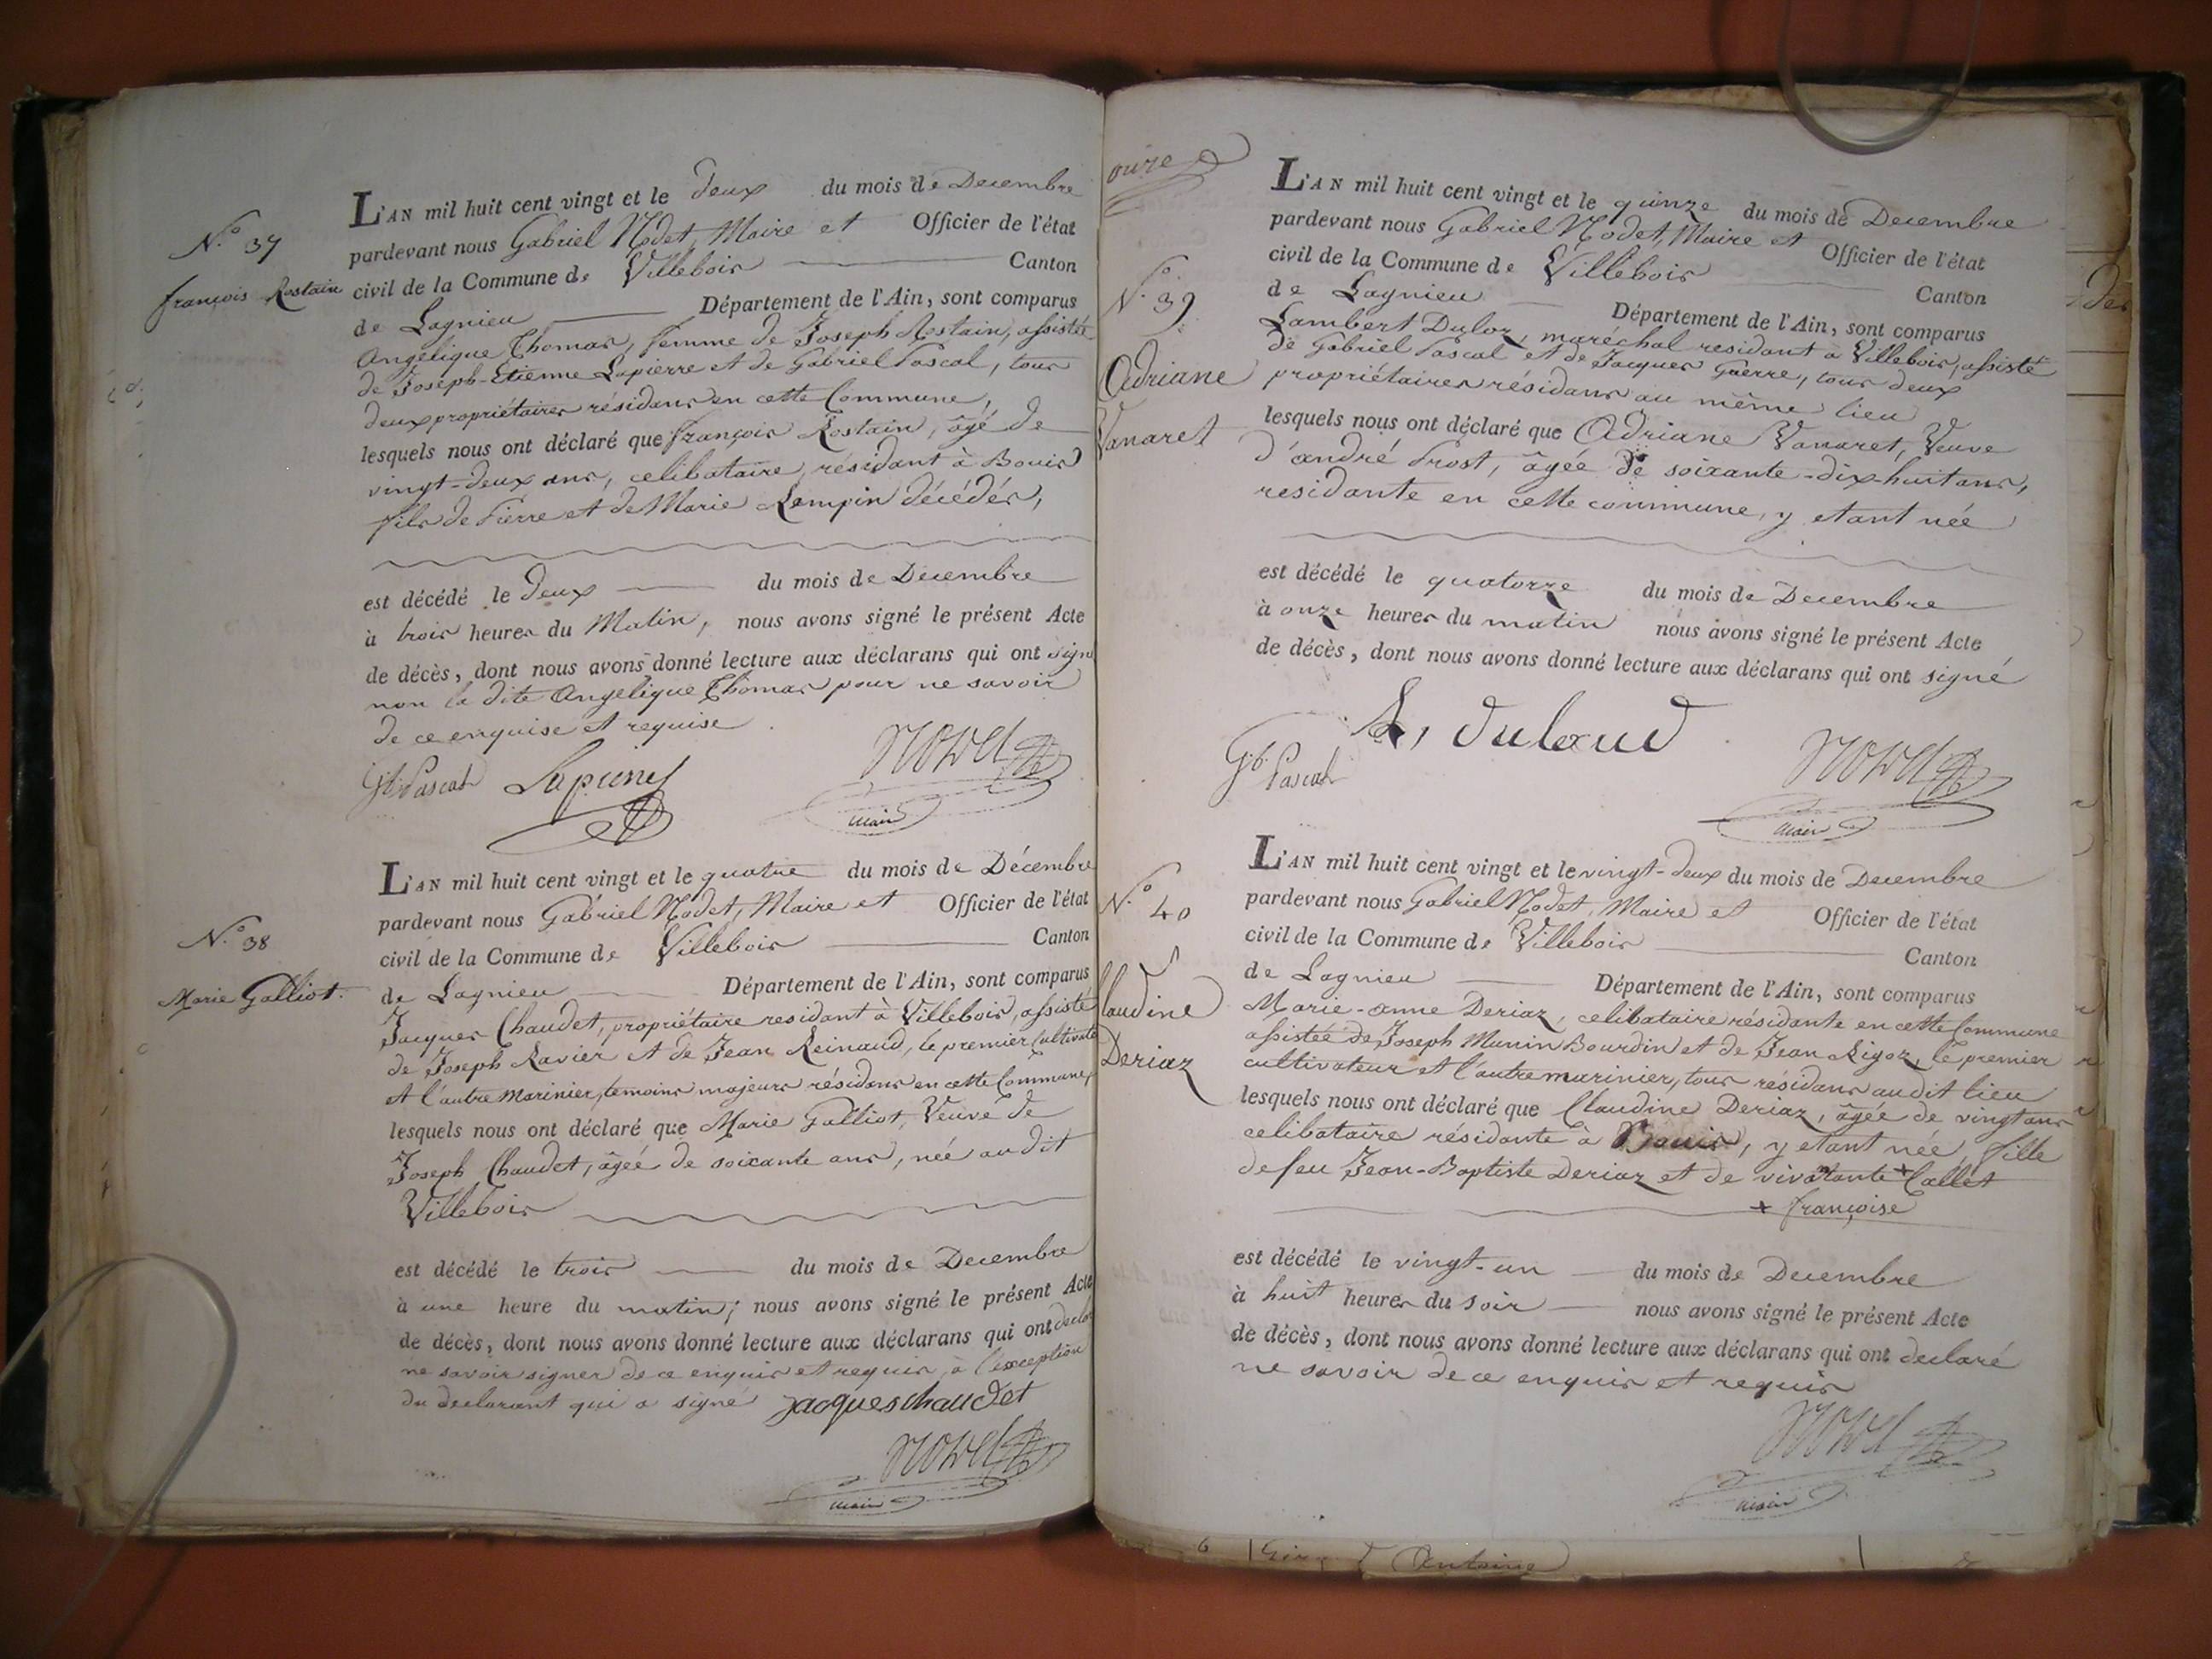 N.° 37
françois Rostain
L'AN mil huit cent vingt et le deux du mois de Decembre
pardevant nous Gabriel Nodet, Maire et Officier de l'état
civil de la Commune de Villebois Canton
de Lagnieu Département de l'Ain, sont comparus
Angélique Thomas, femme de Joseph Rostain, assistée
de Joseph-Etienne Lapierre et de Gabriel Pascal, tous
deux propriétaires résidans en cette Commune,
lesquels nous ont déclaré que françois Rostain, âgé de
vingt-deux ans, celibataire, résidant à Bouis
fils de Pierre et de Marie Rempin décédés,
est décédé le deux du mois de Decembre
à trois heures du Matin, nous avons signé le présent Acte
de décès, dont nous avons donné lecture aux déclarans qui ont signé
non la dite Angelique Thomas pour ne savoir
de ce enquise et requise
Gb. Pascal Lapierre Nodet
maire
N.° 38
Marie Galliot.
L'AN mil huit cent vingt et le quatre du mois de Décembre
pardevant nous Gabriel Nodet, Maire et Officier de l'état
civil de la Commune de Villebois Canton
de Lagnieu Département de l'Ain, sont comparus
Jacques Chaudet, propriétaire residant à Villebois, assisté
de Joseph Ravier et de Jean Reinaud, le premier Cultivate
et l'autre Marinier, temoins majeurs résidans en cette Commune,
lesquels nous ont déclaré que Marie Galliot, Veuve de
Joseph Chaudet, âgée de soixante ans, née au dit
Villebois
est décédé le trois du mois de Decembre
à une heure du matin; nous avons signé le présent Acte
de décès, dont nous avons donné lecture aux déclarans qui ont declar
ne savoir signer de ce enquis et requis, à l'exception
du declarant qui a signé jacques chaudet
Nodet
maire
N.° 39
Adriane
Vanaret
L'AN mil huit cent vingt et le quinze du mois de Decembre
pardevant nous Gabriel Nodet, Maire et Officier de l'état
civil de la Commune de Villebois Canton
de Lagnieu Département de l'Ain, sont comparus
Lambert Duloz, maréchal residant à Villebois, assisté
de Gabriel Pascal et de Jacques Guerre, tous deux
propriétaires résidans au même lieu
lesquels nous ont déclaré que Adriane Vanaret, Veuve
d'andré Prost, âgée de soixante-dix-huit ans,
residante en cette commune, y etant née
est décédé le quatorze du mois de Decembre
à onze heures du matin nous avons signé le présent Acte
de décès, dont nous avons donné lecture aux déclarans qui ont signé
Gb. Pascal Nodet
maire
N.° 40
Claudine
Deriaz
L'AN mil huit cent vingt et le vingt-deux du mois de Decembre
pardevant nous Gabriel Nodet, Maire et Officier de l'état
civil de la Commune de Villebois Canton
de Lagnieu Département de l'Ain, sont comparus
Marie-anne Deriaz, celibataire résidante en cette Commune
assistée de Joseph Munin Bourdin et de Jean Rigoz, le premier
cultivateur et l'autre marinier, tous résidans audit lieu
lesquels nous ont déclaré que Claudine Deriaz, âgée de vingt ans
celibataire résidante à Bouis, y etant née, fille
de feu Jean-Baptiste Deriaz et de vivante + Callet
+ françoise
est décédé le vingt-un du mois de Decembre
à huit heures du soir nous avons signé le présent Acte
de décès, dont nous avons donné lecture aux déclarans qui ont declaré
ne savoir de ce enquis et requis
Nodet
maire
Antoine